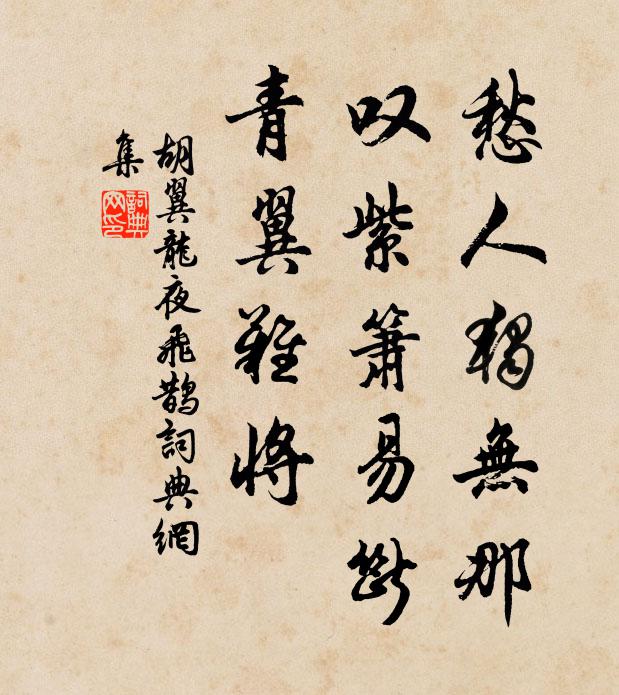 愁人獨無那
叹紫簫易斷
青翼難將
胡翼龍夜飛鵲詞典網
集
詞典網印